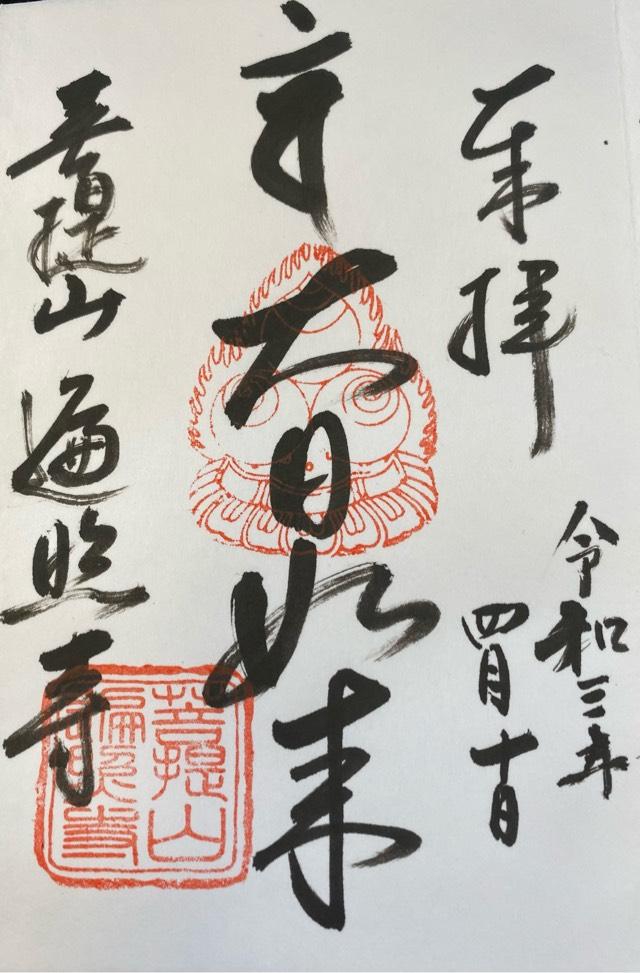 奉拝
令和三年
四月十日
大日如来
菩提山遍照寺
菩提山
遍照寺